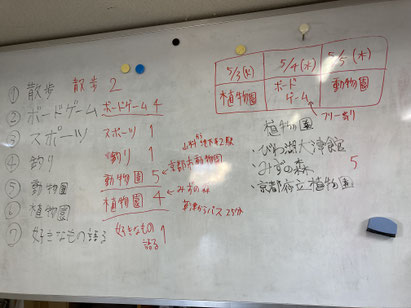 ① 散歩
② ボードゲーム
③ スポーツ
④ 釣り
⑤ 動物園
⑥ 植物園
⑦ 好きなもの語る
散歩 2
ボードゲーム 4
スポーツ 1
釣り 1
動物園 5
植物園 4
好きなもの語る 1
京都市動物園
みずの森
5/3(火) 5/4(水) 5/5(木)
植物園 ボードゲーム 動物園
フリー有り
植物園
・びわ湖大津館
・みずの森 5
・京都府立植物園